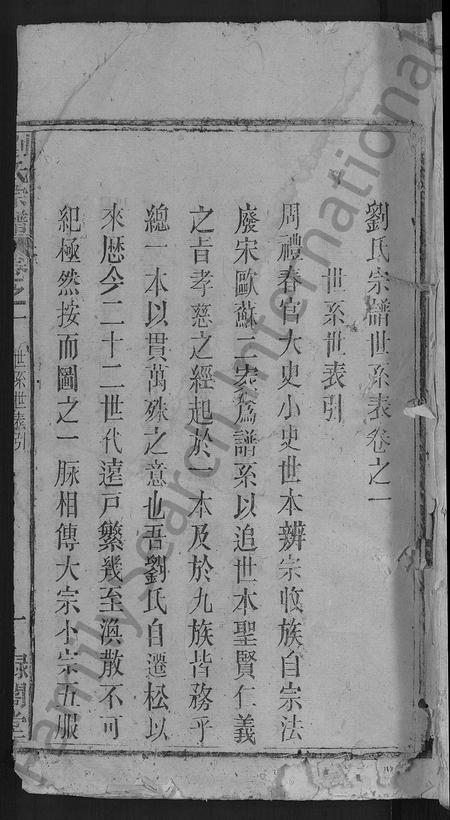 劉氏宗譜世系表卷之一
世系世表引
周禮春官大史小史世本辨宗收族自宗法
廢宋歐蘇二家爲譜系以追世本聖賢仁義
之旨孝慈之經起於一本及於九族皆務乎
總一本以貫萬殊之意也吾劉氏自遷松以
來歷今二十二世代遠戸繁幾至渙散不可
紀極然按而圖之一脉相傳大宗小宗五服
劉氏宗譜 卷之一 世系世表引 一 祿閣堂
FamilySearch International